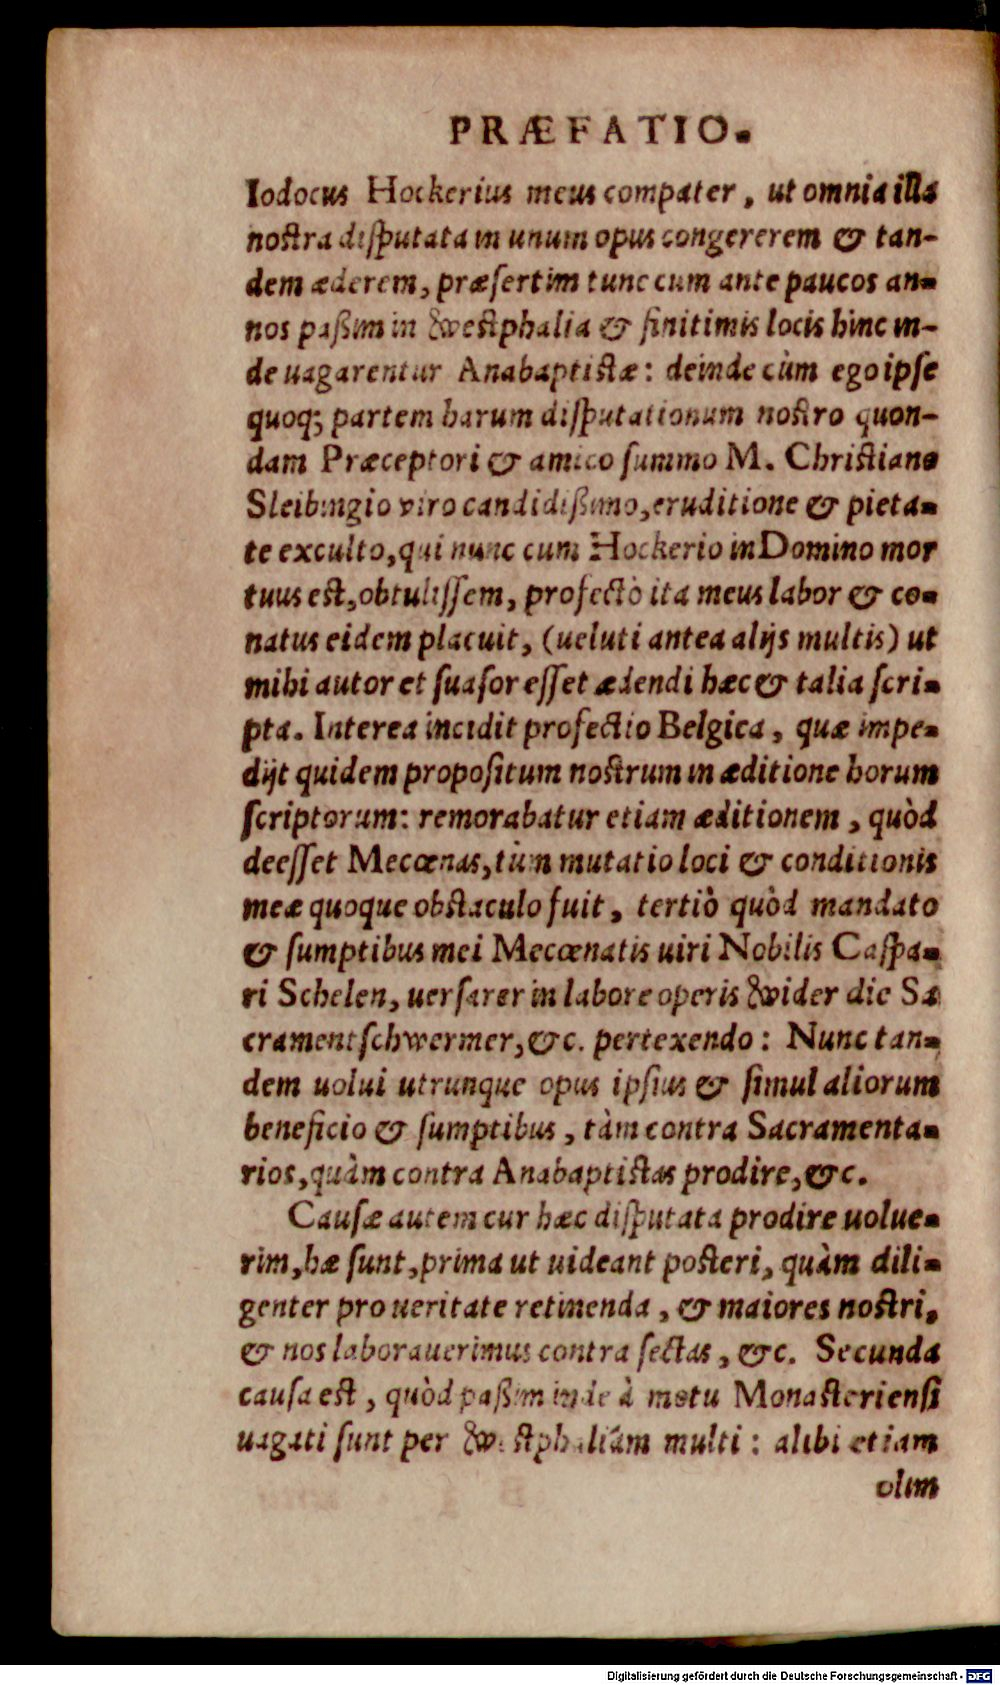 PRÆFATIO.
Iodocus Hockerius meus compater, ut omnia illa
nostra disputata in unum opus congererem & tan-
dem æderem, præsertim tunc cum ante paucos an-
nos paßim in Westphalia & finitimis locis hinc in-
de uagarentur Anabaptistæ: deinde cùm ego ipse
quoq; partem harum disputationum nostro quon-
dam Præceptori & amico summo M. Christiano
Sleibingio viro candidißimo, eruditione & pieta-
te exculto, qui nunc cum Hockerio in Domino mor
tuus est, obtulissem, profectò ita meus labor & co-
natus eidem placuit, (ueluti antea alijs multis) ut
mihi autor et suasor esset ædendi hæc & talia scri-
pta. Interea incidit profectio Belgica, quæ impe-
dijt quidem propositum nostrum in æditione horum
scriptorum: remorabatur etiam æditionem, quòd
deesset Mecœnas, tùm mutatio loci & conditionis
meæ quoque obstaculo fuit, tertiò quòd mandato
& sumptibus mei Mecœnatis uiri Nobilis Caspa-
ri Schelen, uersarer in labore operis Wider die Sa
cramentschwermer, &c. pertexendo: Nunc tan-
dem uolui utrunque opus ipsius & simul aliorum
beneficio & sumptibus, tàm contra Sacramenta-
rios, quàm contra Anabaptistas prodire, &c.
Causæ autem cur hæc disputata prodire uolue-
rim, hæ sunt, prima ut uideant posteri, quàm dili-
genter pro ueritate retinenda, & maiores nostri,
& nos laborauerimus contra sectas, &c. Secunda
causa est, quòd paßim inde à motu Monasteriensi
uagati sunt per Westphaliam multi: alibi etiam
olim
Digitalisierung gefördert durch die Deutsche Forschungsgemeinschaft - DFG